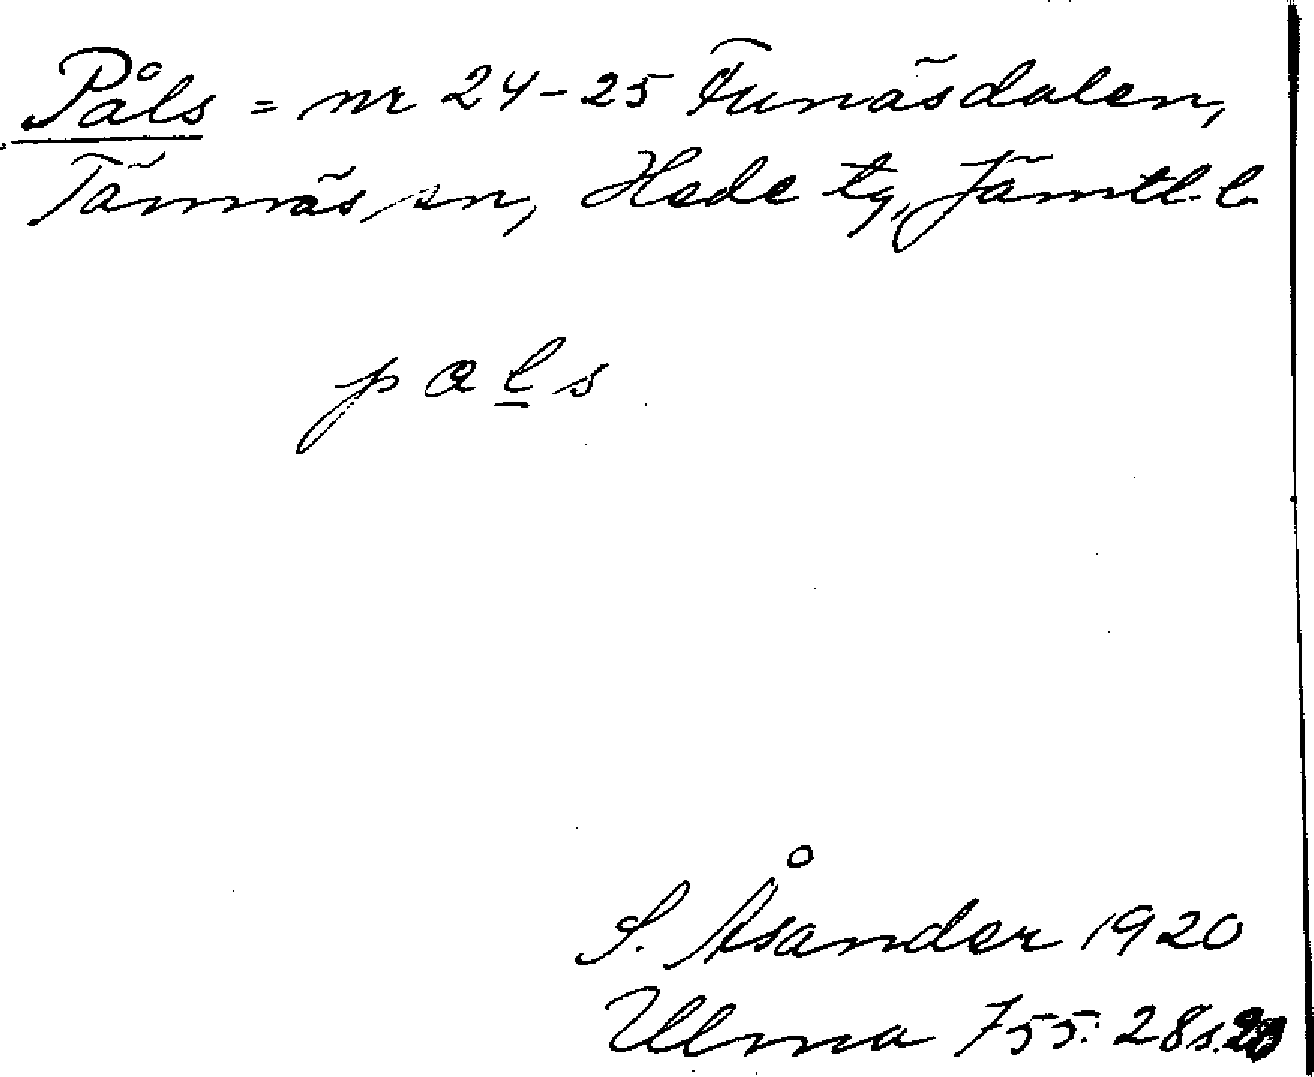 Påls = nr 24-25 Funäsdalen,
Tännäs sn, Hede tg, Jämtl. l.
pals
S. Åsander 1920
Ulma 755:28 s.